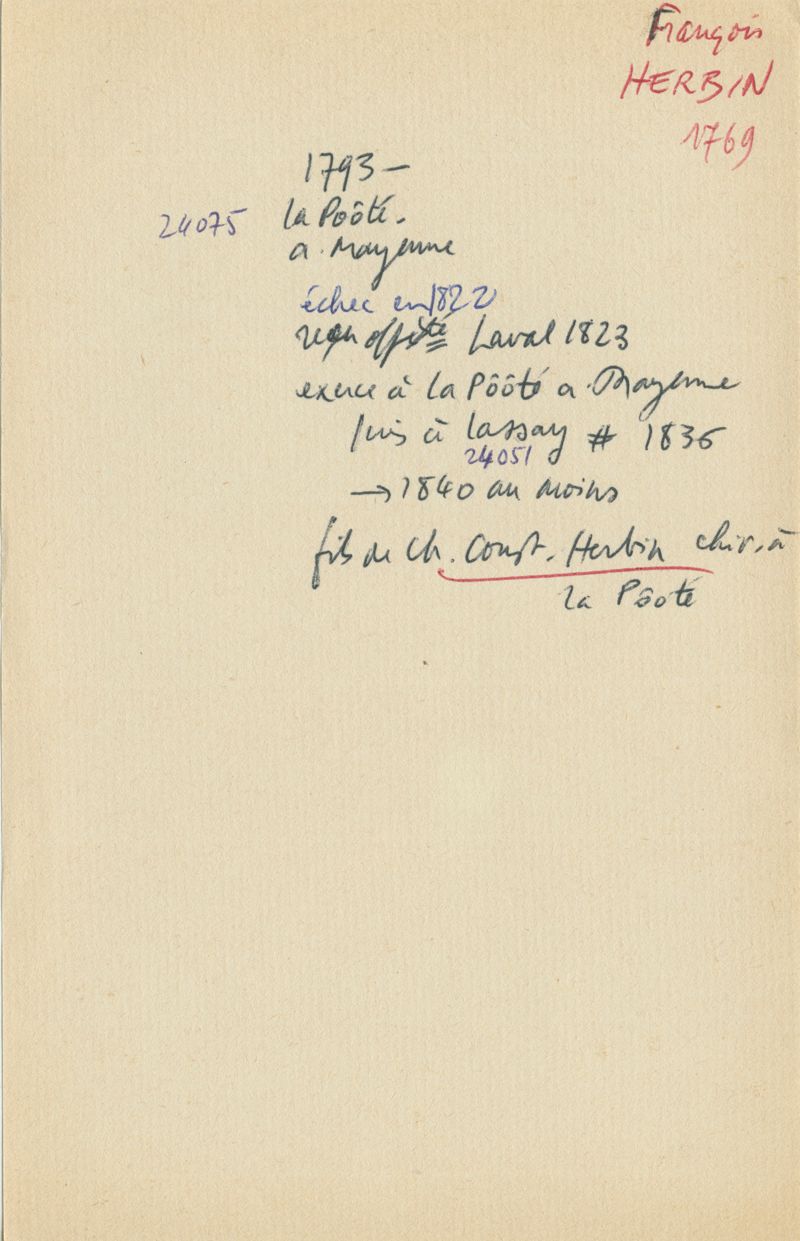 François
HERBIN
1769
1793 –
24075 la Pôôté.
a. Mayenne
échec en 1822
reçu off. sté Laval 1823
exerce à la Pôôté a. Mayenne
puis à Lassay # 1836
24051
→ 1840 au moins
fils de Ch. Const. Herbin chir. à
la Pôoté